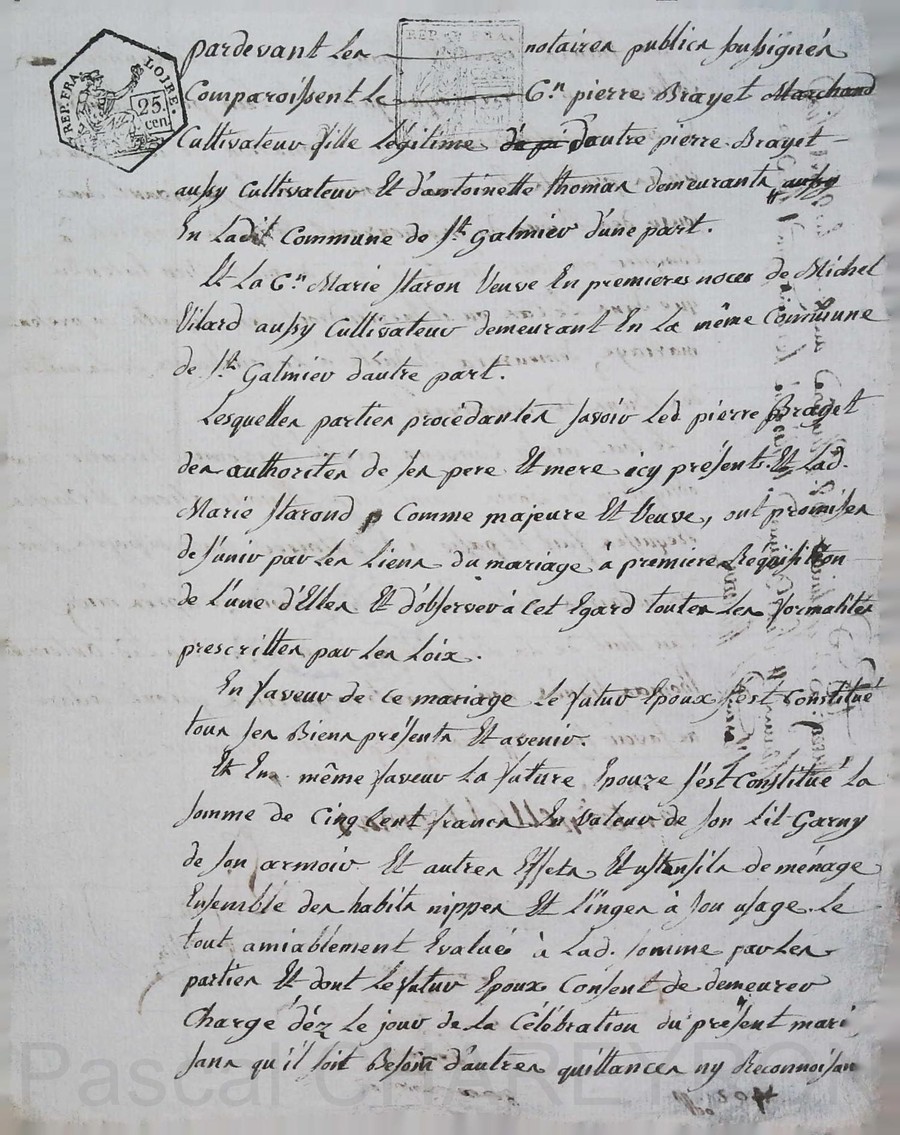 REP. FRA.
LOIRE.
25.
cen
REP. FRA.
pardevant les notaires publics soussignés
Comparoissent le Cn. pierre Brayet Marchand
Cultivateur fills légitime dautre pierre Brayet
aussy Cultivateur Et d'antoinette thomas demeurants aussy
En Ladit Commune de St. Galmier d'une part.
Et La Cn. Marie Staron Veuve En premieres noces de Michel
Vilard aussy Cultivateur demeurant En La même Commune
de St. Galmier d'autre part.
Lesquelles parties procédantes savoir Led. pierre Brayet
des authorités de ses pere Et mere icy présents. Et Lad.
Marie Starond Comme majeure Et Veuve, ont promises
de s'unir par Les Liens du mariage à premiere Réquisition
de L'une d'Elles Et d'observer à Cet Egard toutes Les formalités
prescrittes par Les Loix.
En faveur de ce mariage Le futur Epoux s'est Constitué
tous ses Biens présents Et avenir.
Et En même faveur La future Epouze s'est Constitué La
somme de Cinq Cent francs En valeur de son Lit Garny
de son armoir Et autres Effets Et ustensils de ménage
Ensemble des habits nippes Et Linges à son usage. Le
tout amiablement Evalué à Lad. somme par Les
parties Et dont Le futur Epoux Consent de demeurer
Chargé déz Le jour de La Célébration du présent mari
sans qu'il soit Besoin d'autres quittances ny Reconnoissan
Pascal CHAREYRON